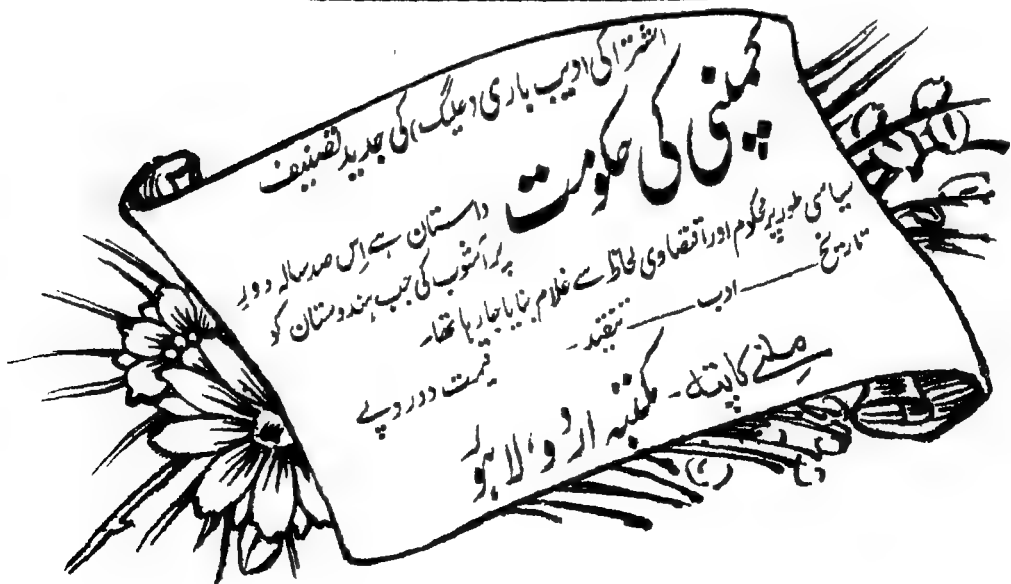 اشتراکی ادیب باری (علیگ) کی جدید تصنیف
کمپنی کی حکومت
داستان ہے اِس صد سالہ دورِ
پر آشوب کی جب ہندوستان کو
سیاسی طور پر محکوم اور اقتصادی لحاظ سے غلام بنایا جا رہا تھا۔
تاریخ ——— ادب ——— تنقید۔
قیمت دو روپے
مِلنے کا پتہ۔ مکتبہ اردو، لاہور